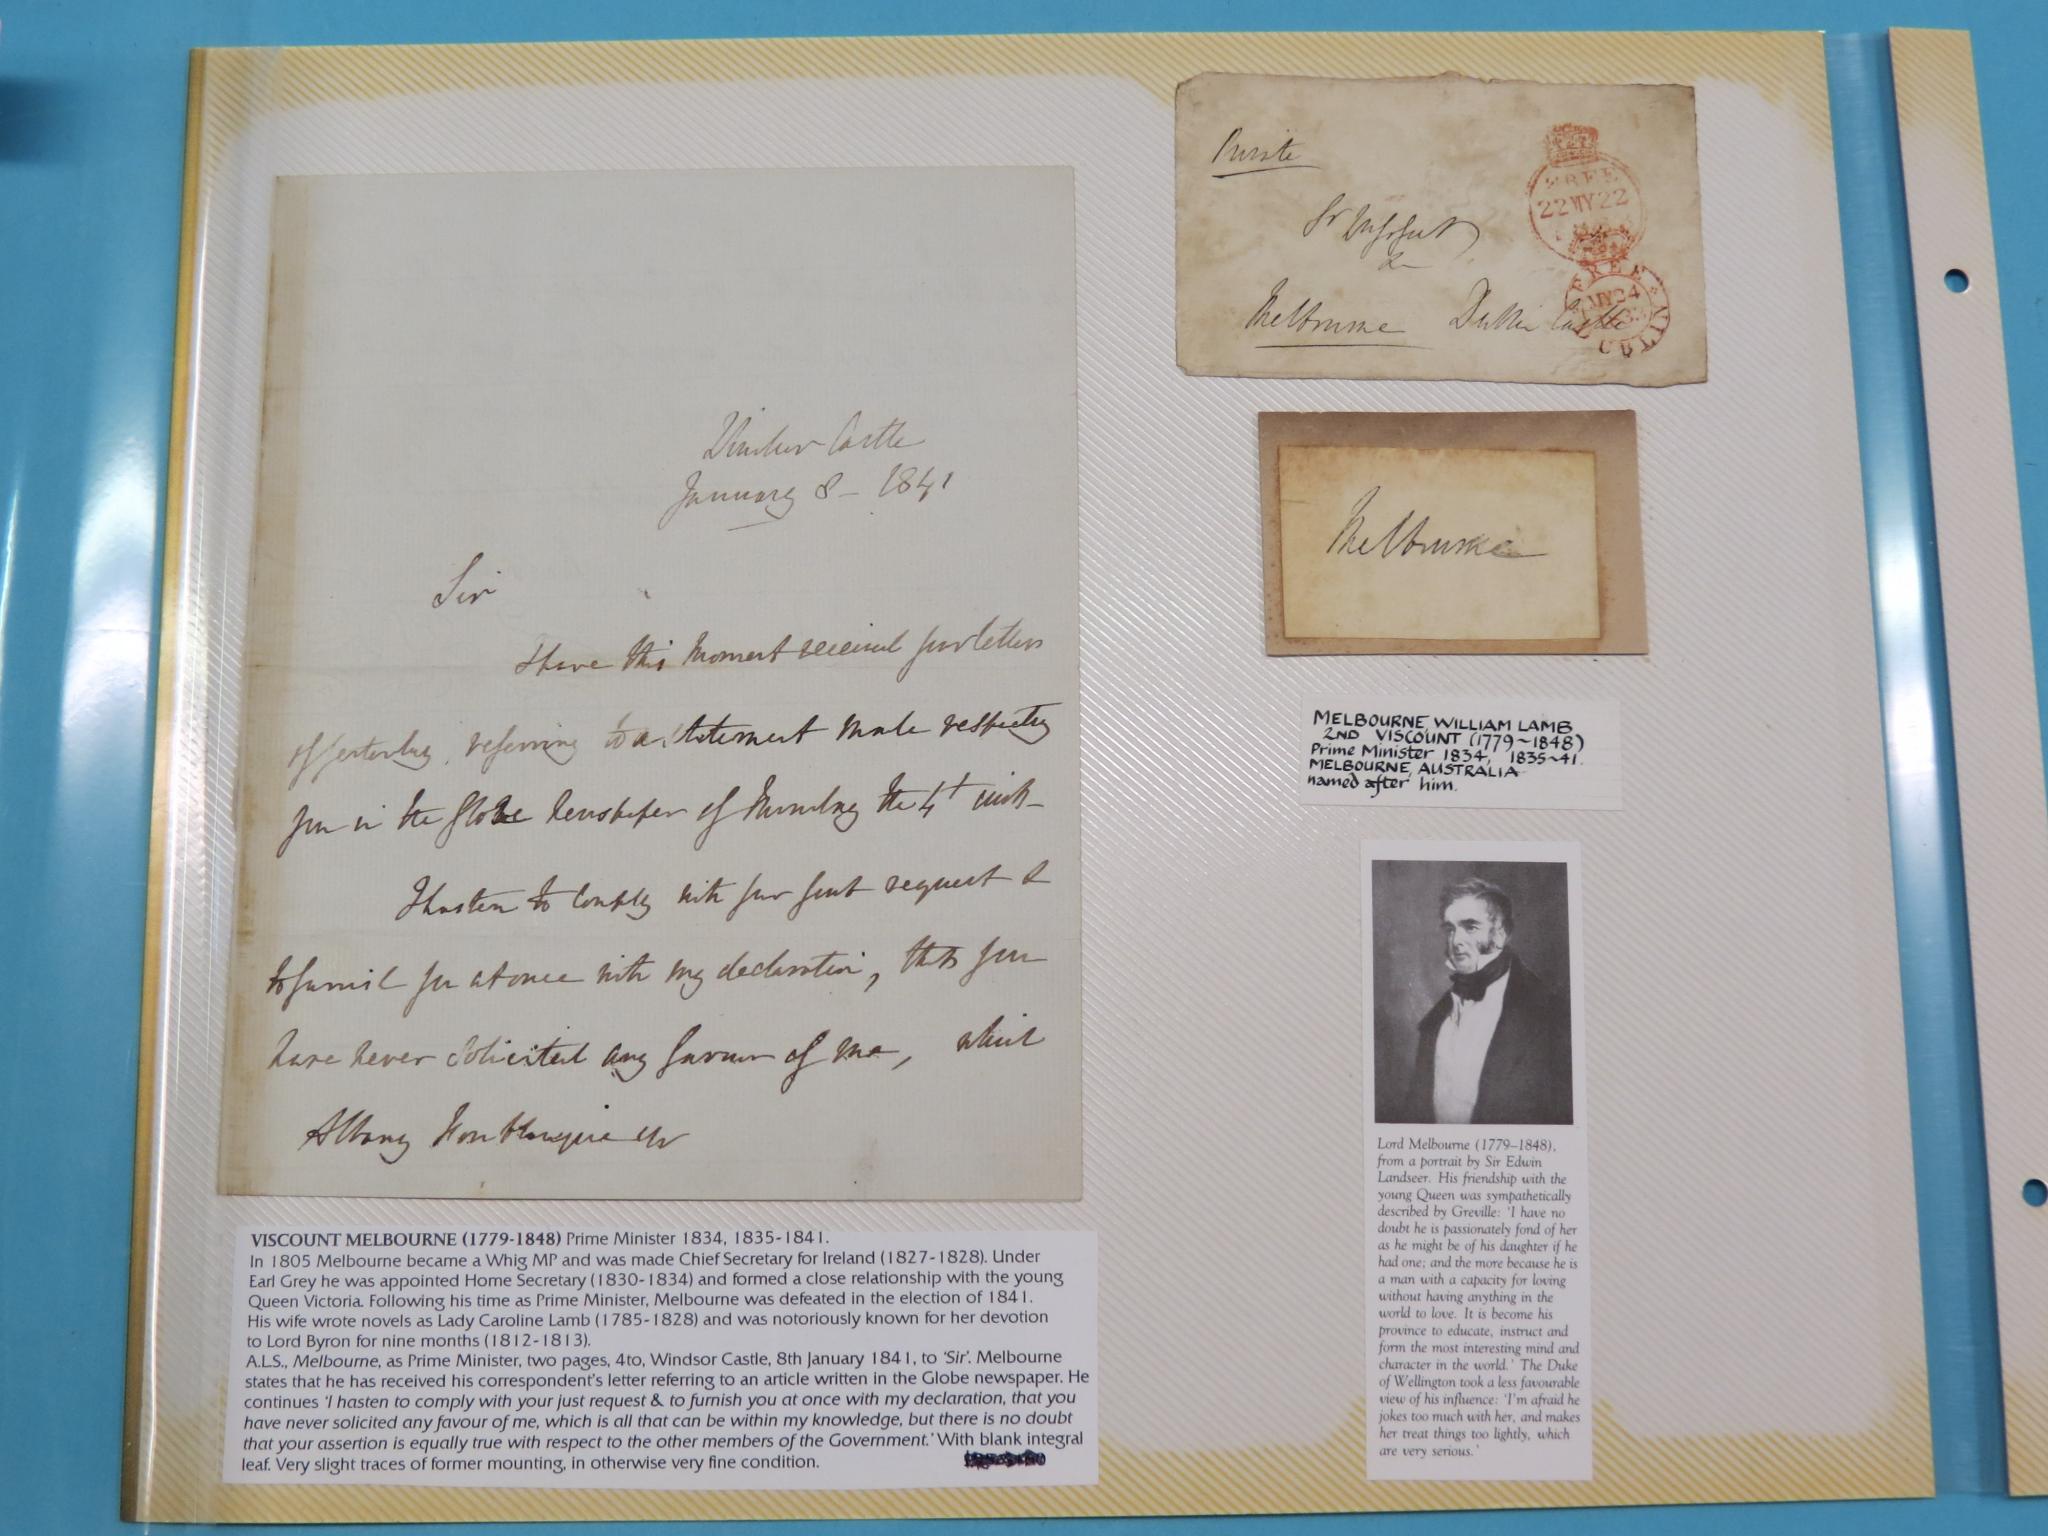 Windsor Castle
January 8 - 1841
Sir
I have this moment received your letter
of yesterday, referring to a statement made respecting
you in the Globe Newspaper of Monday the 4t inst-
I hasten to comply with your just request &
to furnish you at once with my declaration, that you
have never solicited any favour of me, which
Albany Fonblanque Esqr
VISCOUNT MELBOURNE (1779-1848) Prime Minister 1834, 1835-1841.
In 1805 Melbourne became a Whig MP and was made Chief Secretary for Ireland (1827-1828). Under
Earl Grey he was appointed Home Secretary (1830-1834) and formed a close relationship with the young
Queen Victoria. Following his time as Prime Minister, Melbourne was defeated in the election of 1841.
His wife wrote novels as Lady Caroline Lamb (1785-1828) and was notoriously known for her devotion
to Lord Byron for nine months (1812-1813).
A.L.S., Melbourne, as Prime Minister, two pages, 4to, Windsor Castle, 8th January 1841, to 'Sir'. Melbourne
states that he has received his correspondent's letter referring to an article written in the Globe newspaper. He
continues 'I hasten to comply with your just request & to furnish you at once with my declaration, that you
have never solicited any favour of me, which is all that can be within my knowledge, but there is no doubt
that your assertion is equally true with respect to the other members of the Government.' With blank integral
leaf. Very slight traces of former mounting, in otherwise very fine condition.
Private
Sr
&c
Melbourne Dublin Castle
FREE
22 MY 22
FREE
MY 24
DUBLIN
Melbourne
MELBOURNE, WILLIAM LAMB
2ND VISCOUNT (1779~1848)
Prime Minister 1834, 1835~41.
MELBOURNE, AUSTRALIA
named after him.
Lord Melbourne (1779–1848),
from a portrait by Sir Edwin
Landseer. His friendship with the
young Queen was sympathetically
described by Greville: 'I have no
doubt he is passionately fond of her
as he might be of his daughter if he
had one; and the more because he is
a man with a capacity for loving
without having anything in the
world to love. It is become his
province to educate, instruct and
form the most interesting mind and
character in the world.' The Duke
of Wellington took a less favourable
view of his influence: 'I'm afraid he
jokes too much with her, and makes
her treat things too lightly, which
are very serious.'